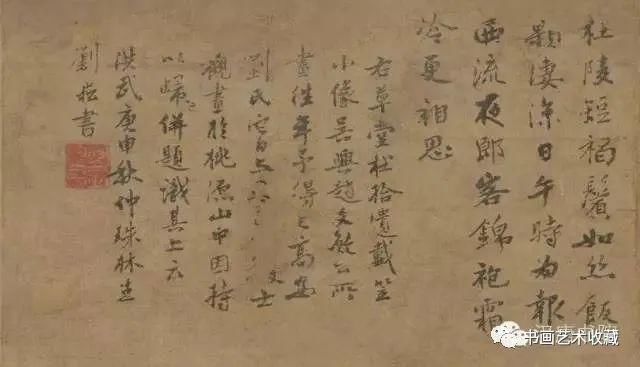 杜陵短褐鬢如丝飯
顆凄凉日午時为報
西流夜郎客錦袍霜
冷更相思
右草堂杜拾遺戴笠
小像吴興趙文敏公所
畫往年予得之高安
劉氏
文士
觀畫於桃源山中因持
以歸併題識其上云
洪武庚申秋仲珠林生
劉崧書
书画艺术收藏